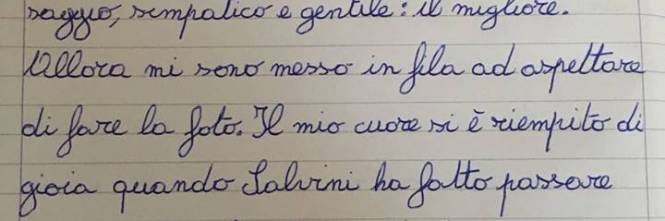 saggio, simpatico e gentile: il migliore.
Allora mi sono messo in fila ad aspettare
di fare la foto. Il mio cuore si è riempito di
gioia quando Salvini ha fatto passare